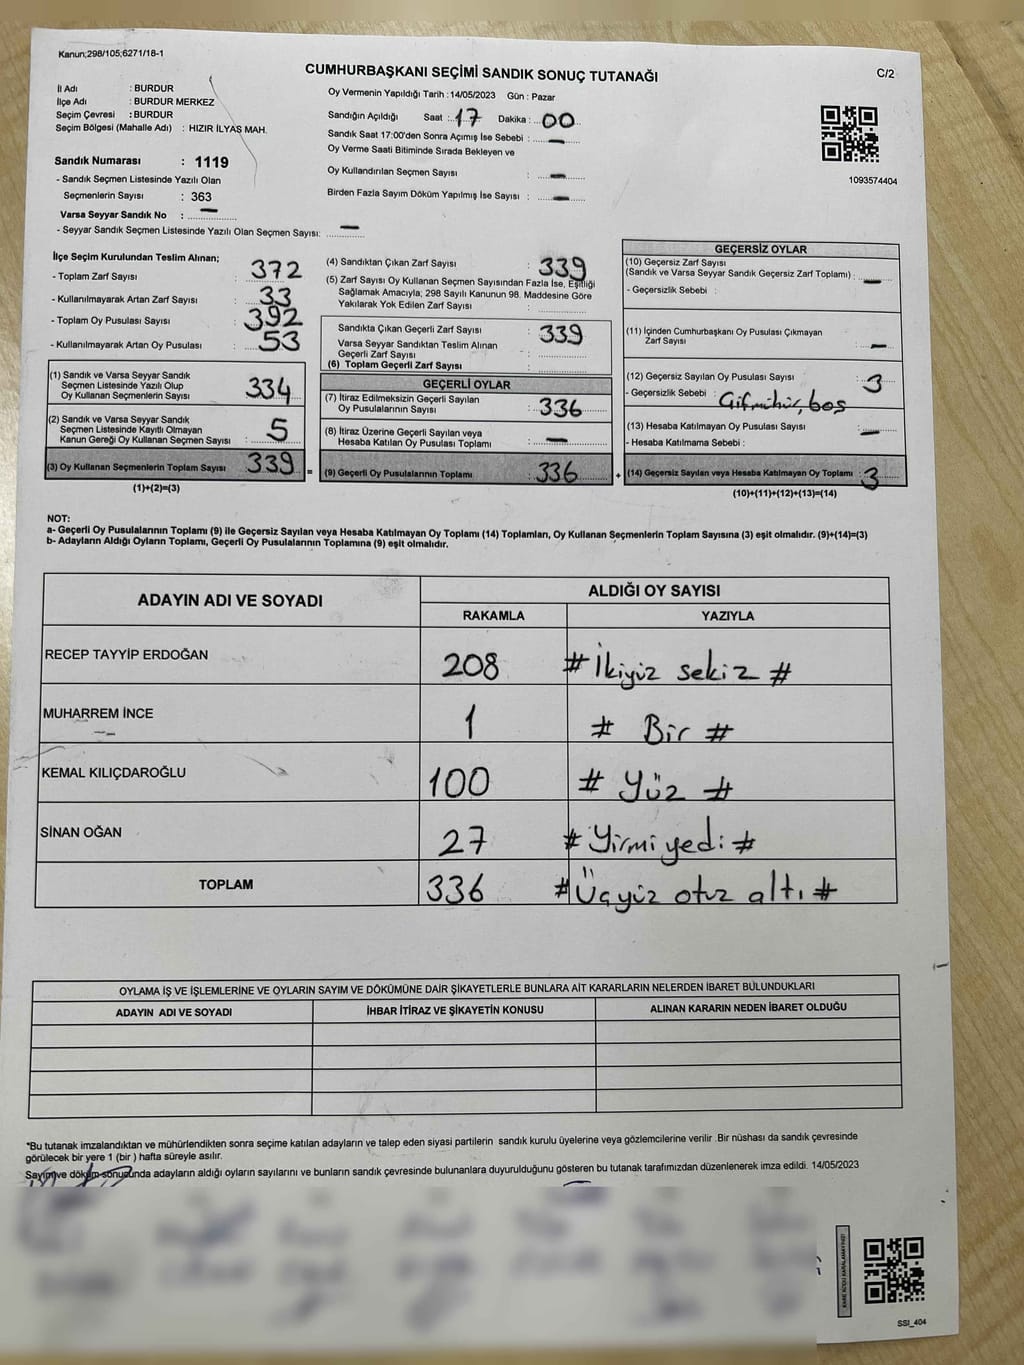 Kanun;298/105;6271/18-1
CUMHURBAŞKANI SEÇİMİ SANDIK SONUÇ TUTANAĞI
C/2
İl Adı : BURDUR
İlçe Adı : BURDUR MERKEZ
Seçim Çevresi : BURDUR
Seçim Bölgesi (Mahalle Adı) : HIZIR İLYAS MAH.
Sandık Numarası : 1119
- Sandık Seçmen Listesinde Yazılı Olan
Seçmenlerin Sayısı : 363
Varsa Seyyar Sandık No : —
- Seyyar Sandık Seçmen Listesinde Yazılı Olan Seçmen Sayısı: —
Oy Vermenin Yapıldığı Tarih : 14/05/2023 Gün : Pazar
Sandığın Açıldığı Saat : 17 Dakika : 00
Sandık Saat 17:00'den Sonra Açılmış İse Sebebi : —
Oy Verme Saati Bitiminde Sırada Bekleyen ve
Oy Kullandırılan Seçmen Sayısı : —
Birden Fazla Sayım Döküm Yapılmış İse Sayısı : —
1093574404
İlçe Seçim Kurulundan Teslim Alınan;
- Toplam Zarf Sayısı : 372
- Kullanılmayarak Artan Zarf Sayısı : 33
- Toplam Oy Pusulası Sayısı : 392
- Kullanılmayarak Artan Oy Pusulası : 53
(1) Sandık ve Varsa Seyyar Sandık
Seçmen Listesinde Yazılı Olup
Oy Kullanan Seçmenlerin Sayısı : 334
(2) Sandık ve Varsa Seyyar Sandık
Seçmen Listesinde Kayıtlı Olmayan
Kanun Gereği Oy Kullanan Seçmen Sayısı : 5
(3) Oy Kullanan Seçmenlerin Toplam Sayısı : 339 =
(1)+(2)=(3)
(4) Sandıktan Çıkan Zarf Sayısı : 339
(5) Zarf Sayısı Oy Kullanan Seçmen Sayısından Fazla İse, Eşitliği
Sağlamak Amacıyla; 298 Sayılı Kanunun 98. Maddesine Göre
Yakılarak Yok Edilen Zarf Sayısı :
Sandıkta Çıkan Geçerli Zarf Sayısı : 339
Varsa Seyyar Sandıktan Teslim Alınan
Geçerli Zarf Sayısı :
(6) Toplam Geçerli Zarf Sayısı :
GEÇERLİ OYLAR
(7) İtiraz Edilmeksizin Geçerli Sayılan
Oy Pusulalarının Sayısı : 336
(8) İtiraz Üzerine Geçerli Sayılan veya
Hesaba Katılan Oy Pusulası Toplamı : —
(9) Geçerli Oy Pusulalarının Toplamı : 336 +
GEÇERSİZ OYLAR
(10) Geçersiz Zarf Sayısı
(Sandık ve Varsa Seyyar Sandık Geçersiz Zarf Toplamı) : —
- Geçersizlik Sebebi :
(11) İçinden Cumhurbaşkanı Oy Pusulası Çıkmayan
Zarf Sayısı : —
(12) Geçersiz Sayılan Oy Pusulası Sayısı : 3
- Geçersizlik Sebebi : Çifmühür, boş
(13) Hesaba Katılmayan Oy Pusulası Sayısı : —
- Hesaba Katılmama Sebebi :
(14) Geçersiz Sayılan veya Hesaba Katılmayan Oy Toplamı : 3
(10)+(11)+(12)+(13)=(14)
NOT:
a- Geçerli Oy Pusulalarının Toplamı (9) ile Geçersiz Sayılan veya Hesaba Katılmayan Oy Toplamı (14) Toplamları, Oy Kullanan Seçmenlerin Toplam Sayısına (3) eşit olmalıdır. (9)+(14)=(3)
b- Adayların Aldığı Oyların Toplamı, Geçerli Oy Pusulalarının Toplamına (9) eşit olmalıdır.
ADAYIN ADI VE SOYADI ALDIĞI OY SAYISI
RAKAMLA YAZIYLA
RECEP TAYYİP ERDOĞAN 208 # İkiyüz sekiz #
MUHARREM İNCE 1 # Bir #
KEMAL KILIÇDAROĞLU 100 # Yüz #
SİNAN OĞAN 27 # Yirmi yedi #
TOPLAM 336 # Üçyüz otuz altı #
OYLAMA İŞ VE İŞLEMLERİNE VE OYLARIN SAYIM VE DÖKÜMÜNE DAİR ŞİKAYETLERLE BUNLARA AİT KARARLARIN NELERDEN İBARET BULUNDUKLARI
ADAYIN ADI VE SOYADI İHBAR İTİRAZ VE ŞİKAYETİN KONUSU ALINAN KARARIN NEDEN İBARET OLDUĞU
*Bu tutanak imzalandıktan ve mühürlendikten sonra seçime katılan adayların ve talep eden siyasi partilerin sandık kurulu üyelerine veya gözlemcilerine verilir .Bir nüshası da sandık çevresinde
görülecek bir yere 1 (bir ) hafta süreyle asılır.
Sayım ve döküm sonucunda adayların aldığı oyların sayılarını ve bunların sandık çevresinde bulunanlara duyurulduğunu gösteren bu tutanak tarafımızdan düzenlenerek imza edildi. 14/05/2023
KARE KODU KARALAMAYINIZ!
SSI_404